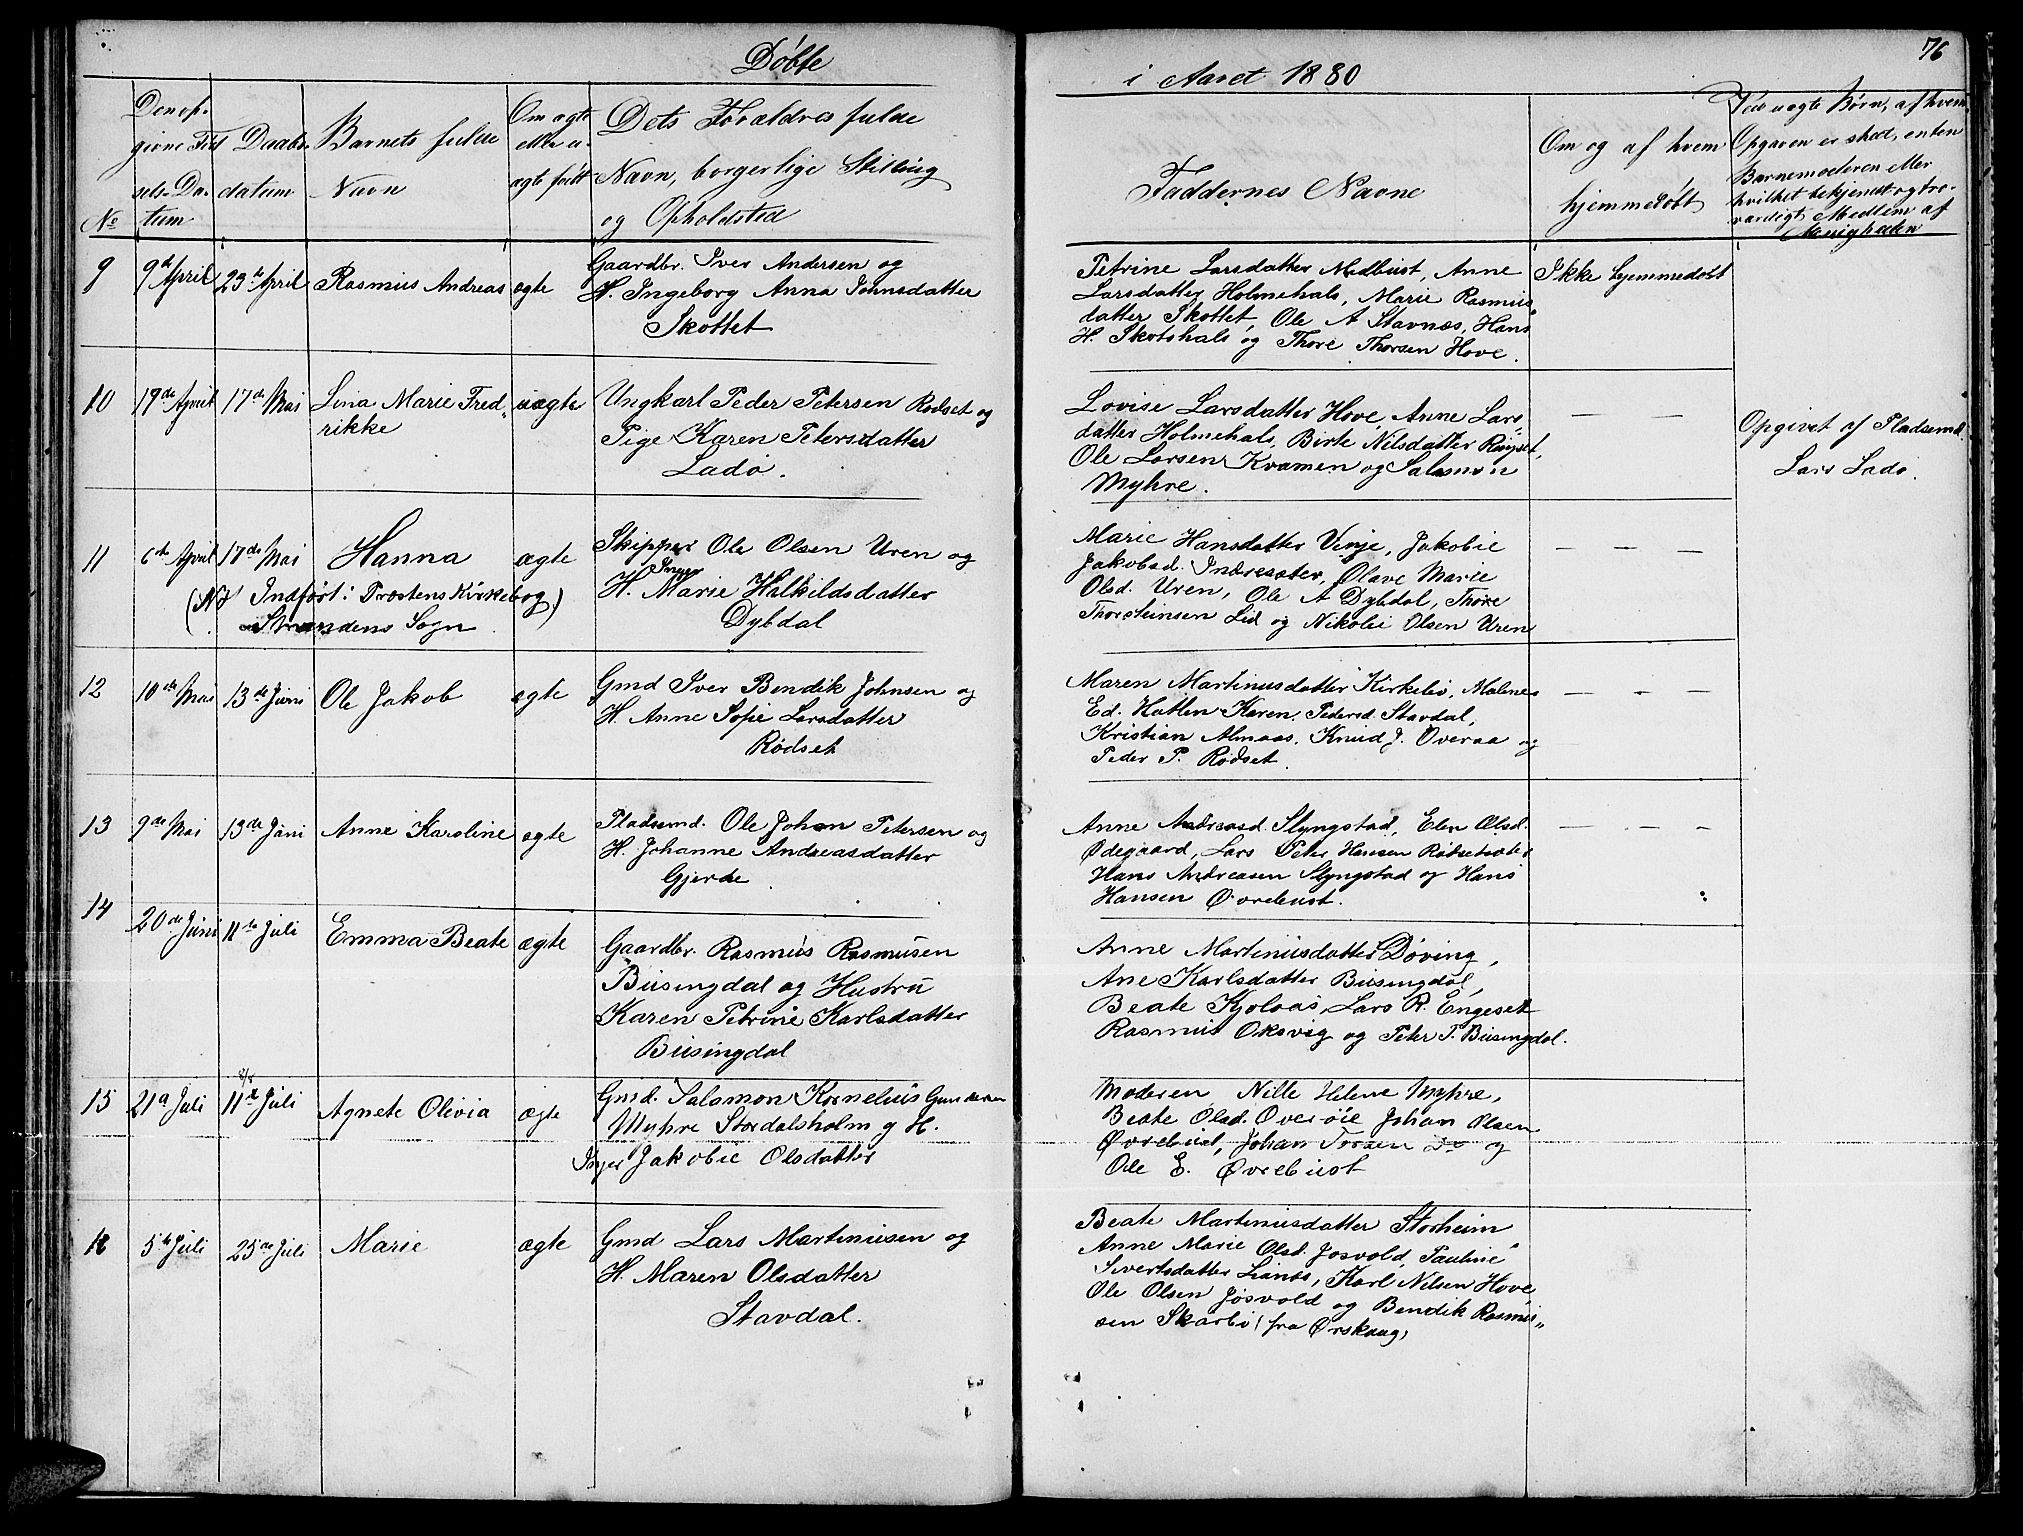 Døbte
i Aaret 1880
76
No
Den op-
givne Fød
sels-Da-
tum
Daabs
datum
Barnets fulde
Navn
Om ægte
eller u-
ægte født
Dets Forældres fulde
Navn, borgerlige Stilling
og Opholdsted
Faddernes Navne
Om og af hvem
hjemmedøbt
Ved uægte Børn, af hvem
Opgaven er skeet, enten
Barnemoderen eller
hvilket bekjendt og tro-
værdigt Medlem af
Menigheden
9
9de April
23de April
Rasmus Andreas
ægte
Gaardbr. Iver Andersen og
H. Ingeborg Anna Johnsdatter
Skottet
Petrine Larsdatter Medbust, Anne
Larsdatter Holmehals, Marie Rasmus
datter Skottet, Ole A Stavnæs, Hans
H. Skotshals og Thore Thorsen Hove.
Ikke hjemmedøbt
10
19de April
17de Mai
Lina Marie Fred-
rikke
uægte
Ungkarl Peder Petersen Rødset og
Pige Karen Petersdatter
Ladø.
Lovise Larsdatter Hove, Anne Lars
datter Holmehals, Birte Nilsdatter Ringset,
Ole Larsen Kvamen og Salomon
Myhre.
— — —
Opgivet af Pladsemd.
Lars Ladø.
11
6te April
17de Mai
Hanna
ægte
(NB Indført i Præstens Kirkebog)
Strandens Sogn
Skipper Ole Olsen Uren og
Inger
H. Marie Halkildsdatter
Dybdal
Marie Hansdatter Vinje, Jakobie
Jakobsd. Indresæter, Olave Marie
Olsd. Uren, Ole A Dybdal, Thore
Thorsteinsen Lid og Nikolai Olsen Uren
— — —
12
10de Mai
13de Juni
Ole Jakob
ægte
Gmd Iver Bendik Johnsen og
H. Anne Sofie Larsdatter
Rødset
Maren Martinusdatter Kirkebø, Malene
Ed. Hatlen Karen Pedersd. Stavdal,
Kristian Almaas, Knud J. Overaa og
Peder P. Rødset.
— — —
13
9de Mai
13de Juni
Anne Karoline
ægte
Pladsemd. Ole Johan Petersen og
H. Johanne Andreasdatter
Gjerde
Anne Andreasd. Slyngstad, Elen Olsd.
Ødegaard, Lars Peter Hansen Rødsetsæter
Hans Andreasen Slyngstad og Hans
Hansen Øvrebust.
— — — —
14
20de Juni
11te Juli
Emma Beate
ægte
Gaardbr. Rasmus Rasmusen
Busingdal og Hustru
Karen Petrine Karlsdatter
Busingdal
Anne Martinusdatter Døving,
Ane Karlsdatter Busingdal,
Beate Kjølaas, Lars R. Engeset
Rasmus Oksvig og Peter P. Busingdal.
15
21a Juli
8/8
11te Juli
Agnete Olivia
ægte
Gmd. Salamon Kornelius Gundersen
Myhre Stordalsholm g H.
Inger Jakobie Olsdatter
Moderen Nille Helene Myhre,
Beate Olsd. Overøie Johan Olsen
Øvrebust, Johan Torsen Do og
Ole E. Øvrebust
16
5te Juli
25de Juli
Marie
ægte
Gmd Lars Martinusen og
H. Maren Olsdatter
Stavdal.
Beate Martinusdatter Storheim
Anne Marie Olsd. Jøsvold, Pauline
Sivertsdatter Lianes, Karl Nilsen Hove
Ole Olsen Jøsvold og Bendik Rasmus-
sen Skarbø (fra Ørskoug)